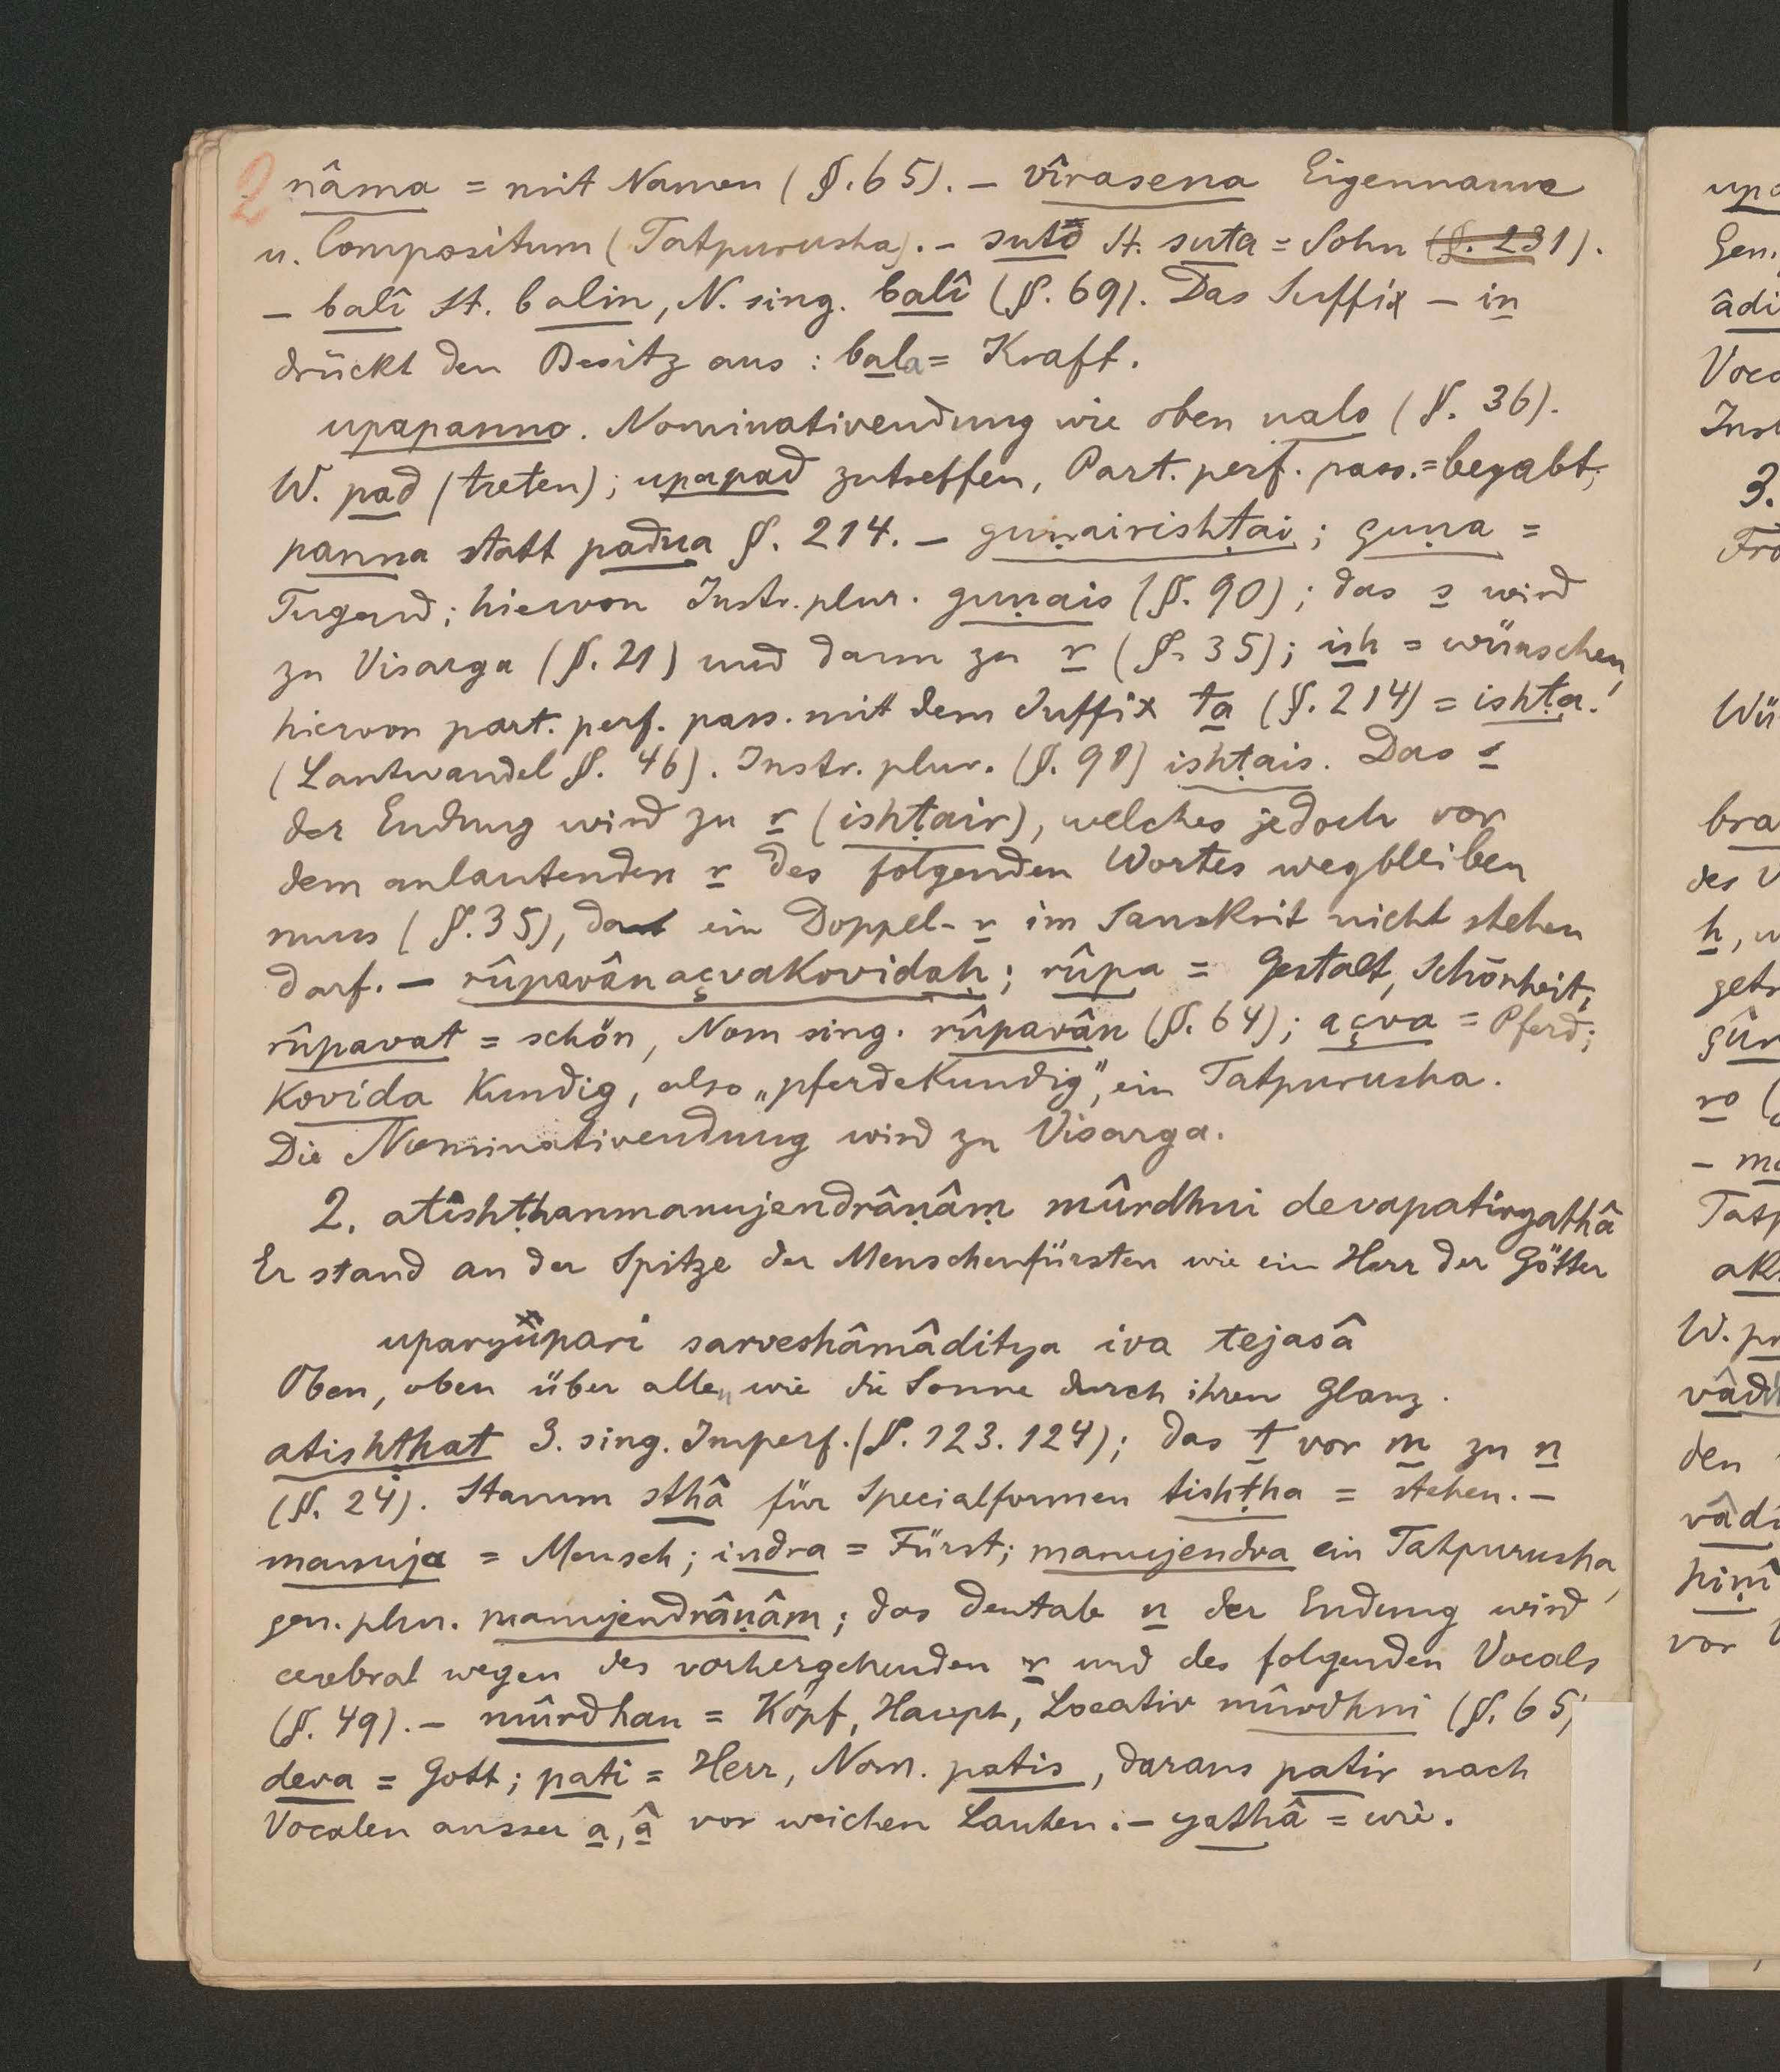 2 nâma = mit Namen (§. 65). – vîrasena Eigenname
u. Compositum (Tatpurusha). – sutô St. suta = Sohn (§. 231).
– balî St. balin, N. sing. balî (§. 69). Das Suffix – in
drückt den Besitz aus: bala = Kraft.
upapanno. Nominativendung wie oben nalo (§. 36).
W. pad (treten); upapad zutreffen, Part. perf. pass. = begabt;
panna statt padna §. 214. – guṇairishṭai; guṇa =
Tugend; hiervon Instr. plur. guṇais (§. 90); das s wird
zu Visarga (§. 21) und dann zu r (§. 35); ish = wünschen,
hiervon part. perf. pass. mit dem Suffix ta (§. 214) = ishṭa.
(Lautwandel §. 46). Instr. plur. (§. 90) ishṭais. Das s
der Endung wird zu r (ishṭair), welches jedoch vor
dem anlautenden r des folgenden Wortes wegbleiben
muss (§. 35), da ein Doppel-r im Sanskrit nicht stehen
darf. – rûpavânaçvakovidaḥ; rûpa = Gestalt, Schönheit;
rûpavat = schön, Nom sing. rûpavân (§. 64); açva = Pferd;
kovida kundig, also „pferdekundig", ein Tatpurusha.
Die Nominativendung wird zu Visarga.
2. atishṭhanmanujendrâṇâṃ mûrdhni devapatiryathâ
Er stand an der Spitze der Menschenfürsten wie ein Herr der Götter
uparyupari sarveshâmâditya iva tejasâ
Oben, oben über allen wie die Sonne durch ihren Glanz.
atishṭhat 3. sing. Imperf. (§. 123. 124); das t vor m zu n
(§. 24). Stamm sthâ für Specialformen tishṭha = stehen. –
manuja = Mensch; indra = Fürst; manujendra ein Tatpurusha,
gen. plur. manujendrâṇâm; das dentale n der Endung wird
cerebral wegen des vorhergehenden r und des folgenden Vocals
(§. 49). – mûrdhan = Kopf, Haupt, Locativ mûrdhni (§. 65)
deva = Gott; pati = Herr, Nom. patis, daraus patir nach
Vocalen ausser a, â vor weichen Lauten. – yathâ = wie.
Voca
3.
Wü
bra
des V
h, w
ro
Tatp
vâdi
den
vor